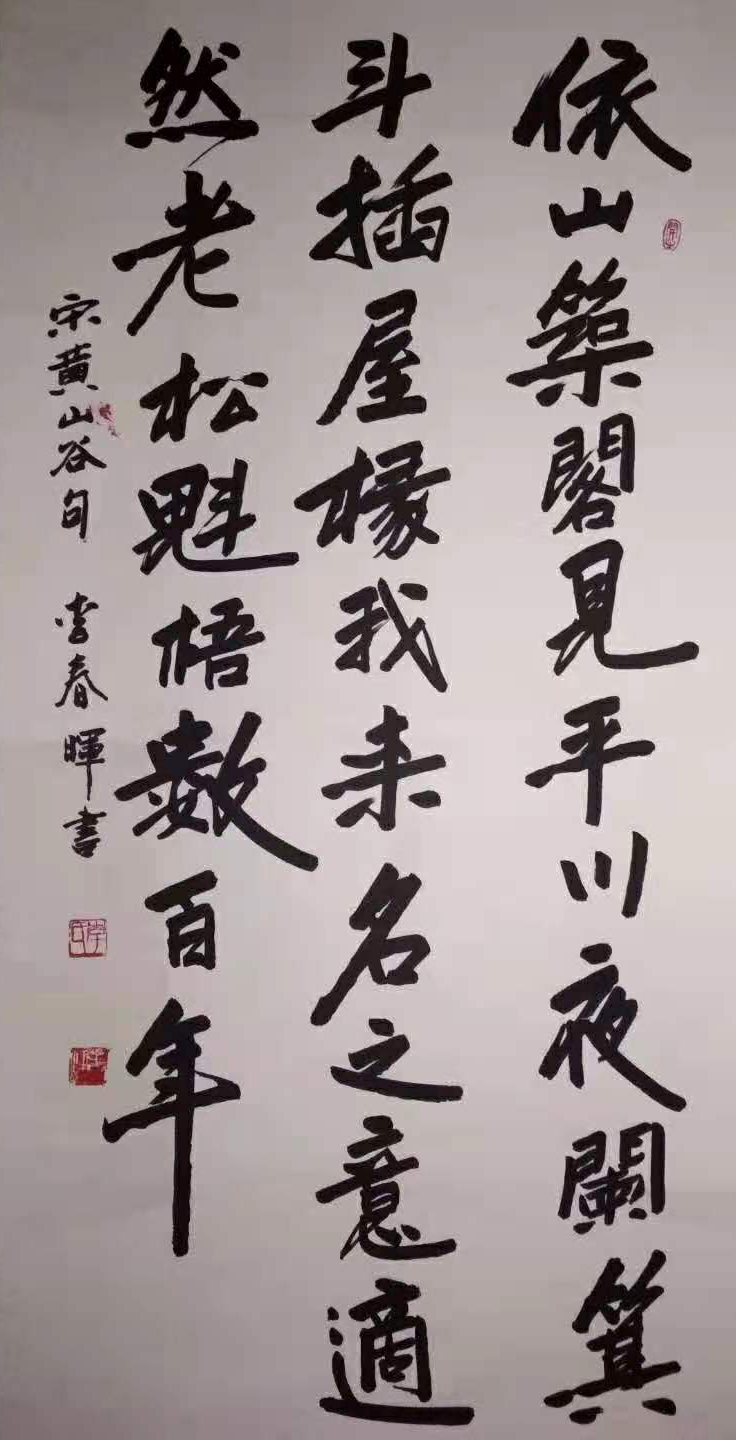 依山築閣見平川夜闌箕
斗插屋椽我来名之意適
然老松魁梧數百年
宋黄山谷句 李春暉書